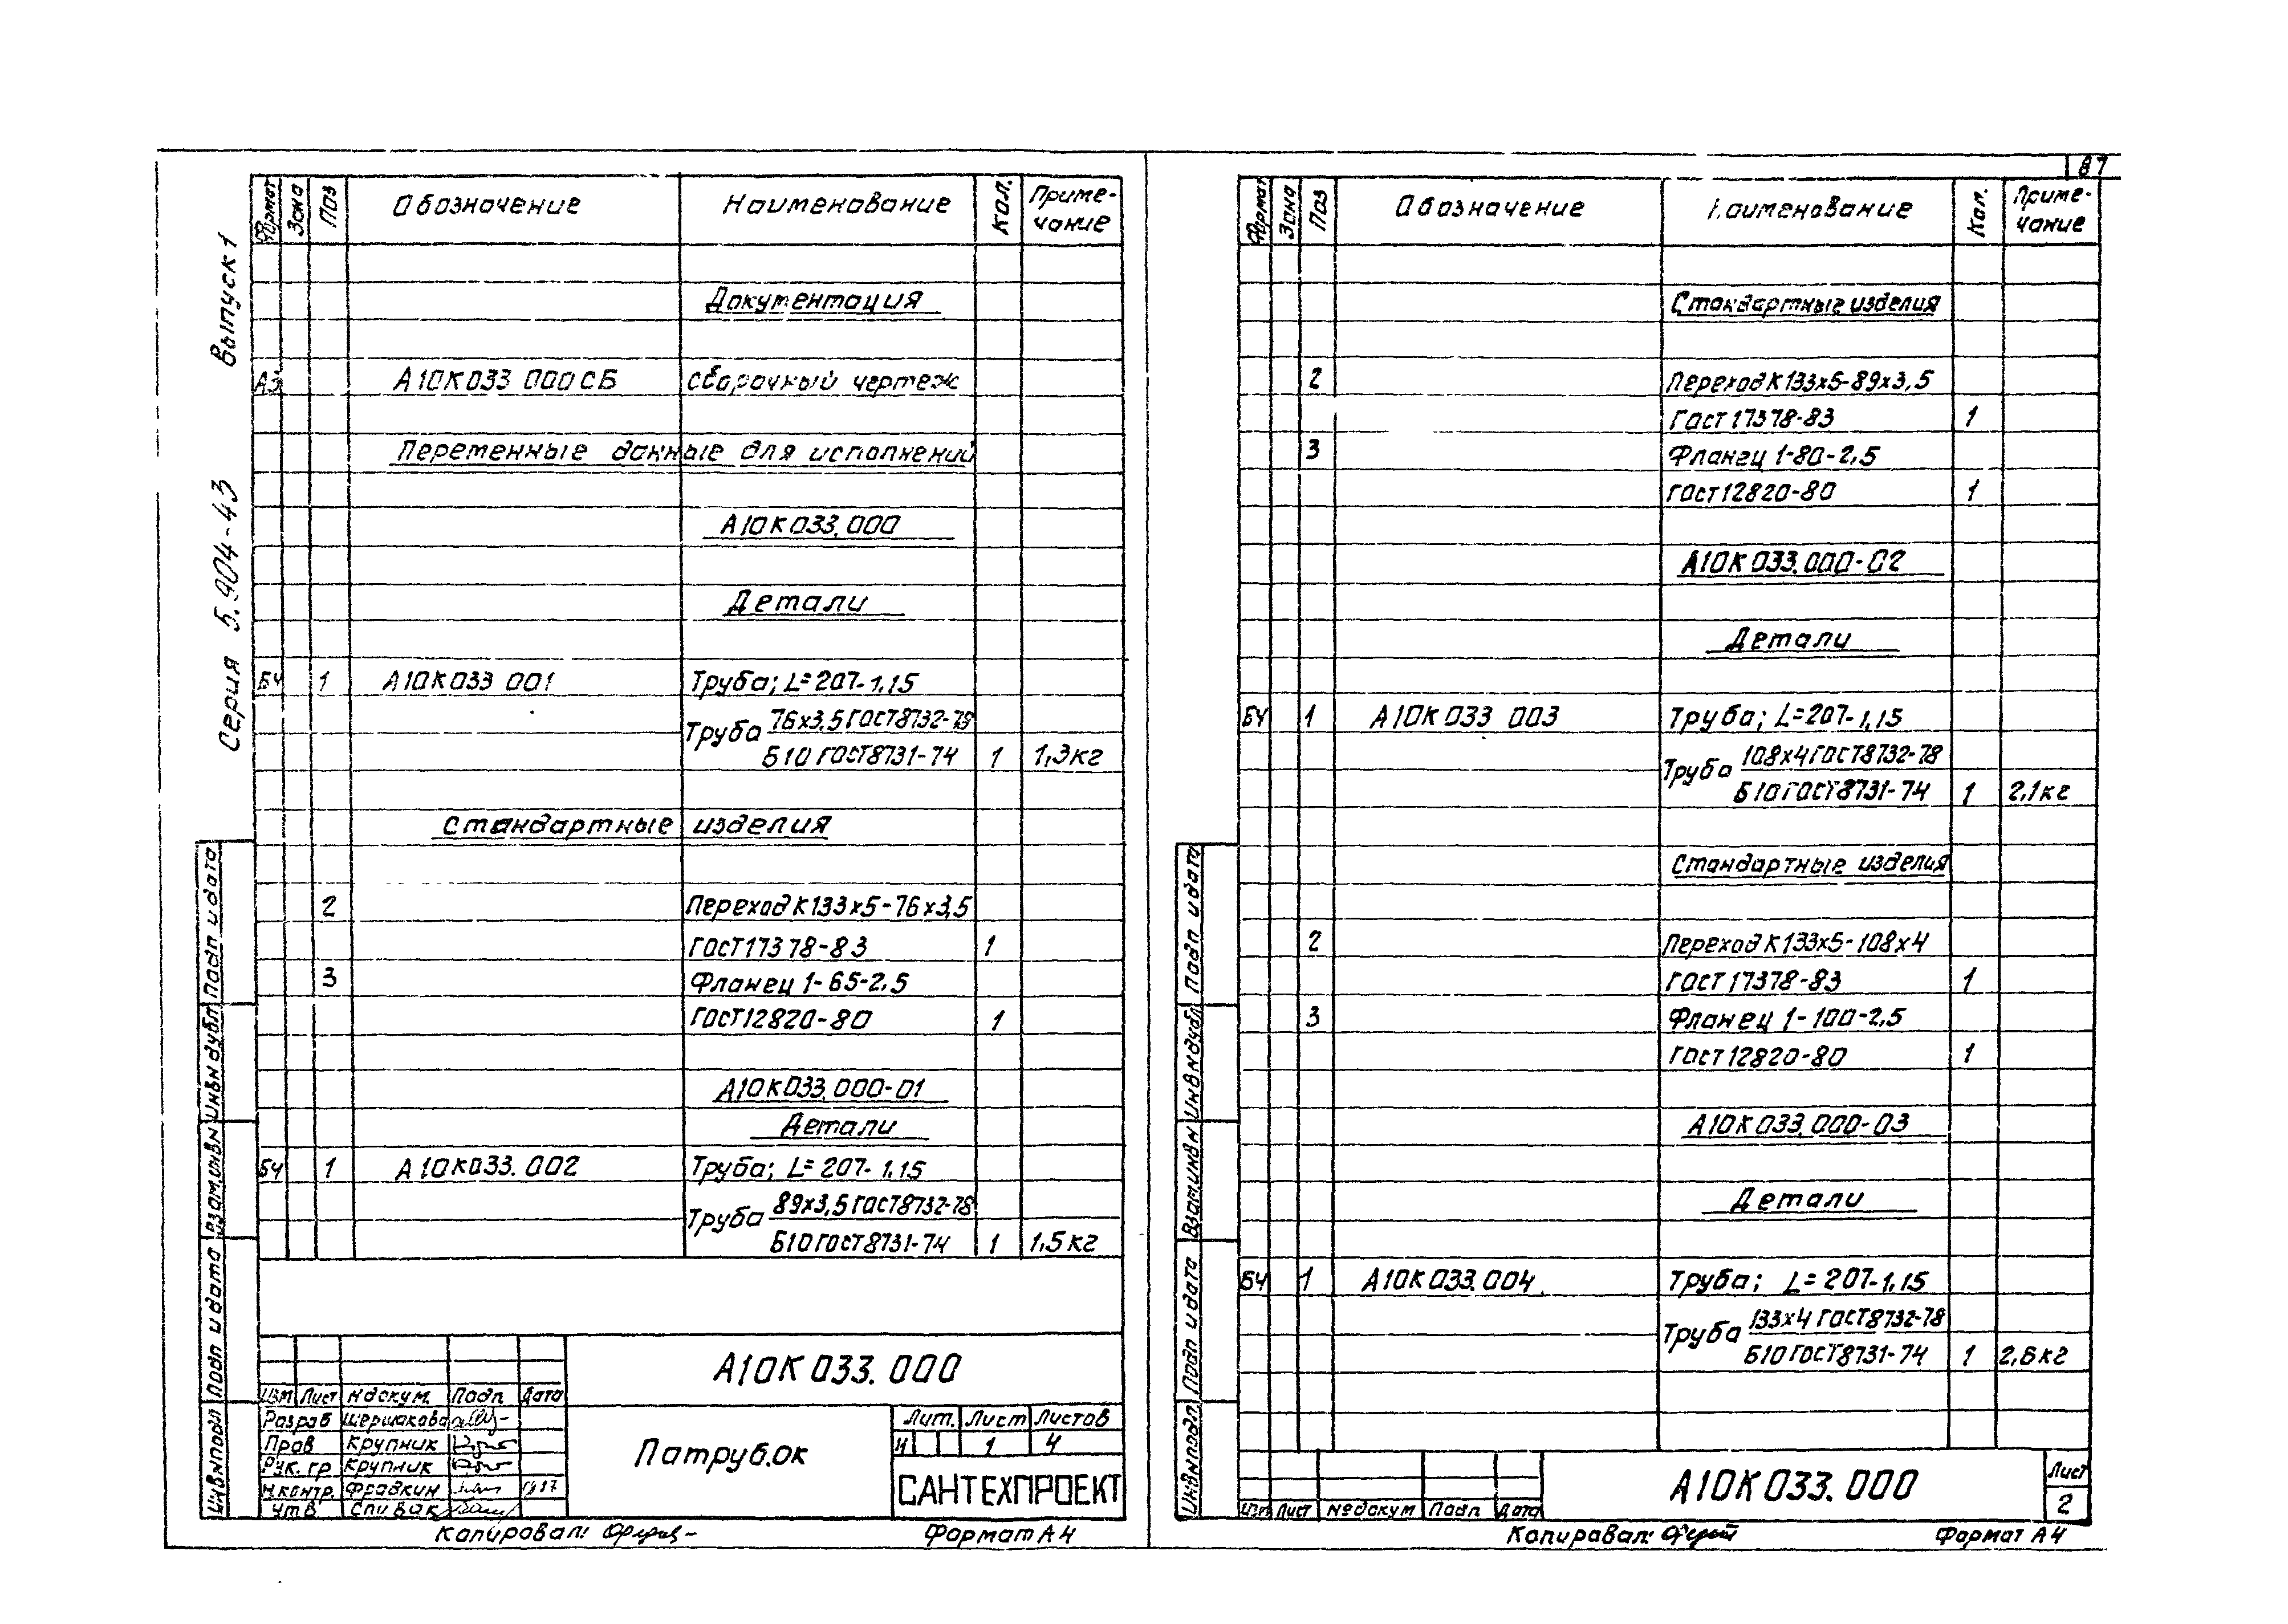 Серия 5.904-43 Выпуск 1
Формат Зона Поз Обозначение Наименование Кол. Приме-чание
Документация
А3 А10К033 000СБ Сборочный чертеж
Переменные данные для исполнений
А10К033.000
Детали
БЧ 1 А10К033 001 Труба; L=207-1,15
Труба 76х3,5 ГОСТ8732-78
Б10 ГОСТ8731-74 1 1,3кг
Стандартные изделия
2 Переход К133х5-76х3,5
ГОСТ17378-83 1
3 Фланец 1-65-2,5
ГОСТ12820-80 1
А10К033.000-01
Детали
БЧ 1 А10К033.002 Труба; L=207-1,15
Труба 89х3,5 ГОСТ8732-78
Б10 ГОСТ8731-74 1 1,5кг
Подп и дата
Инв№ дубл
Взам.инв№
Подп и дата
Инв№подл
А10К033.000
Изм Лист №докум. Подп Дата
Разраб Шершакова
Пров Крупник
Рук. гр Крупник
Н.контр. Фрадкин
Утв Спивак
Патрубок
Лит. Лист Листов
И 1 4
САНТЕХПРОЕКТ
Копировал:
Формат А4
87
Формат Зона Поз Обозначение Наименование Кол. Приме-чание
Стандартные изделия
2 Переход К133х5-89х3,5
ГОСТ17378-83 1
3 Фланец 1-80-2,5
ГОСТ12820-80 1
А10К033.000-02
Детали
БЧ 1 А10К033 003 Труба; L=207-1,15
Труба 108х4 ГОСТ8732-78
Б10 ГОСТ8731-74 1 2,1кг
Стандартные изделия
2 Переход К133х5-108х4
ГОСТ17378-83 1
3 Фланец 1-100-2,5
ГОСТ12820-80 1
А10К033.000-03
Детали
БЧ 1 А10К033.004 Труба; L=207-1,15
Труба 133х4 ГОСТ8732-78
Б10 ГОСТ8731-74 1 2,6кг
Подп и дата
Инв№дубл
Взам.инв№
Подп и дата
Инв№подл
Изм Лист №докум Подп Дата
А10К033.000
Лист
2
Копировал:
Формат А4